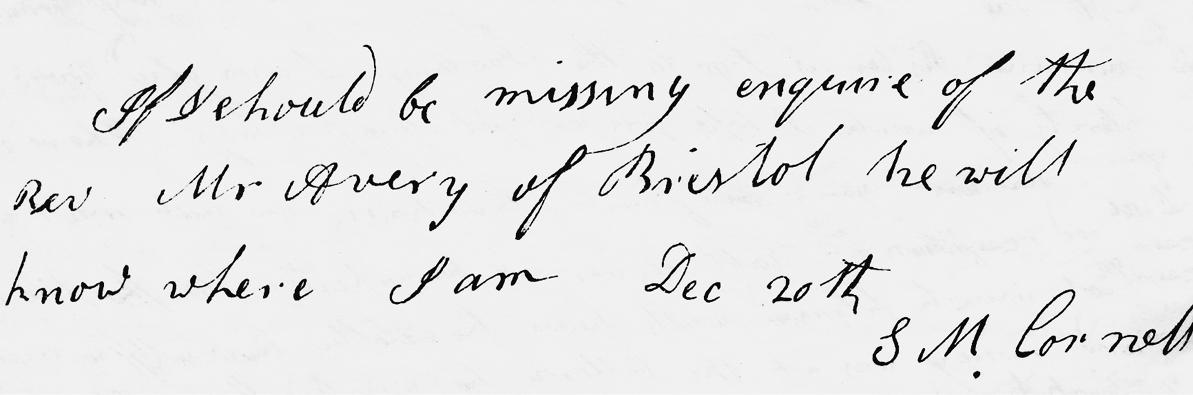 If I should be missing enquire of the
Rev Mr Avery of Bristol he will
know where I am Dec 20th
S M. Cornell